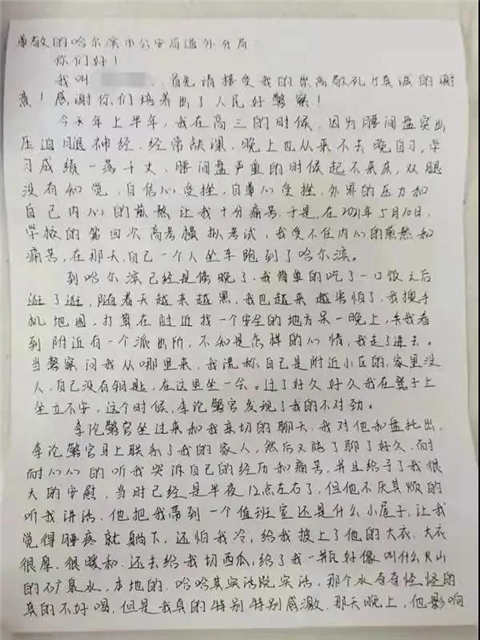 尊敬的哈尔滨市公安局道外分局
你们好！
我叫 首先请接受我的崇高敬礼与真诚的谢
意！感谢你们培养出了人民好警察！
今年上半年，我在高三的时候，因为腰间盘突出
压迫腿神经，经常缺课，晚上也从来不去晚自习，学
习成绩一落千丈，腰间盘严重的时候起不来床，双腿
没有知觉，自信心受挫，自尊心受挫，外界的压力和
自己内心的煎熬让我十分痛苦，于是，在2021年5月10日，
学校的第四次高考模拟考试，我受不住内心的煎熬和
痛苦，在那天，自己一个人坐车跑到了哈尔滨。
到哈尔滨已经是傍晚了，我简单的吃了一口饭之后
逛了逛，随着天越来越黑，我也越来越害怕了，我搜手
机地图，打算在附近找一个安全的地方呆一晚上，当我看
到附近有一个派出所，不知是怎样的心情，我走了进去。
当警察问我从哪里来，我谎称自己是附近小区的，家里没
人，自己没有钥匙，在这里坐一坐。过了好久好久我在凳子上
坐立不安，这个时候，李论警官发现了我的不对劲。
李论警官坐过来和我亲切的聊天，我对他和盘托出，
李论警官马上联系了我的家人，然后又陪了聊了好久，耐
耐心心的听我哭诉自己的经历和痛苦，并且给予了我很
大的安慰，当时已经是半夜12点左右了，但他不厌其烦的
听我讲话，他把我带到一个值班室还是什么小屋子，让我
觉得腰疼就躺下，还怕我冷，给我披上了他的大衣，大衣
很厚，很暖和，还去给我切西瓜，给了我一瓶好像叫什么火山
的矿泉水，本地的，哈哈其实话说实话，那个水有有怪怪的
真的不好喝，但是我真的特别特别感激，那天晚上，他影响